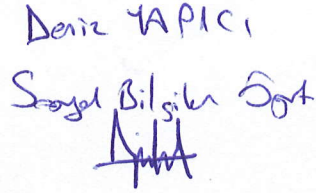 Deniz YAPICI
Sosyal Bilgiler Öğrt